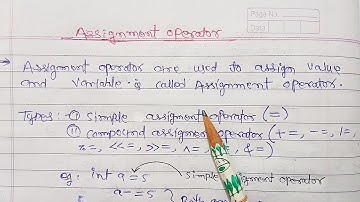 Page No.
Date
Assignment operator
→ Assignment operator are used to assign value
and variable is called Assignment operator.
Types:- ① Simple assigment operator (=)
② Compound assigment operator (+=, -=, /=,
<<=, >>=, ^=, &=)
eg: int a=5 simple operator